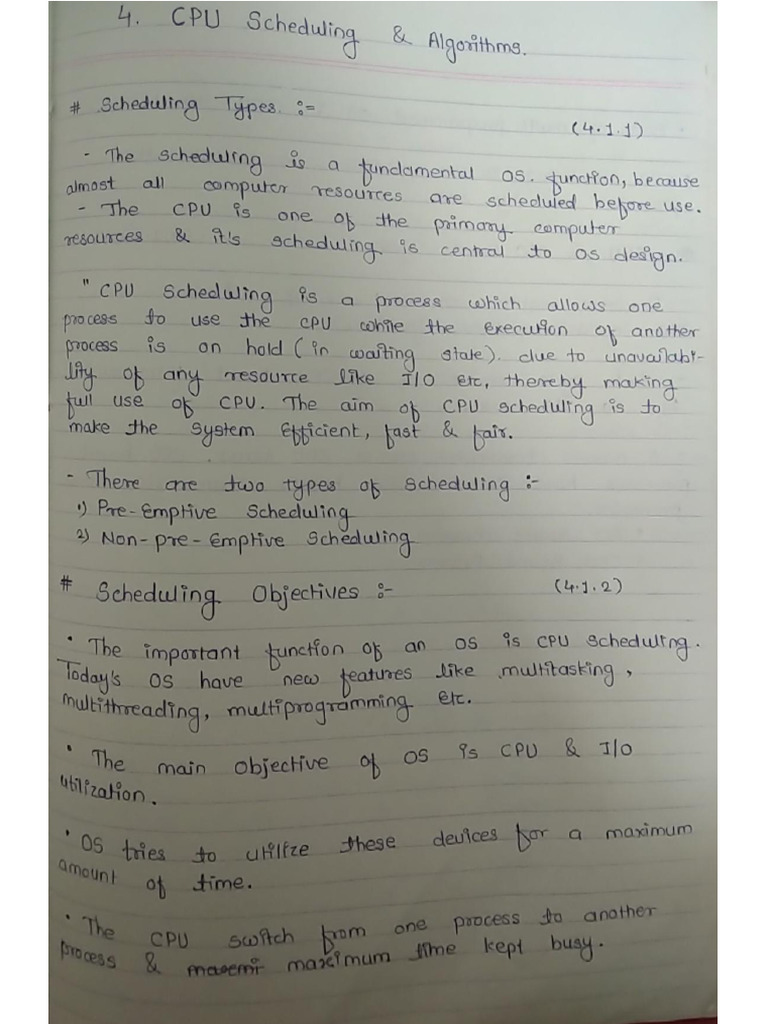 4. CPU Scheduling & Algorithms.
# Scheduling Types :-
(4.1.1)
- The scheduling is a fundamental OS. function, because
almost all computer resources are scheduled before use.
- The CPU is one of the primary computer
resources & it's scheduling is central to OS design.
" CPU Scheduling is a process which allows one
process to use the CPU while the execution of another
process is on hold (in waiting state). due to unavailabi-
lity of any resource like I/O etc, thereby making
full use of CPU. The aim of CPU scheduling is to
make the system Efficient, fast & fair.
- There are two types of scheduling :-
1) Pre-Emptive Scheduling
2) Non-pre-Emptive Scheduling
# Scheduling Objectives :- (4.1.2)
• The important function of an OS is CPU scheduling.
Today's OS have new features like multitasking,
multithreading, multiprogramming etc.
• The main objective of OS is CPU & I/O
utilization.
• OS tries to utilize these devices for a maximum
amount of time.
• The CPU switch from one process to another
process & maximum time kept busy.